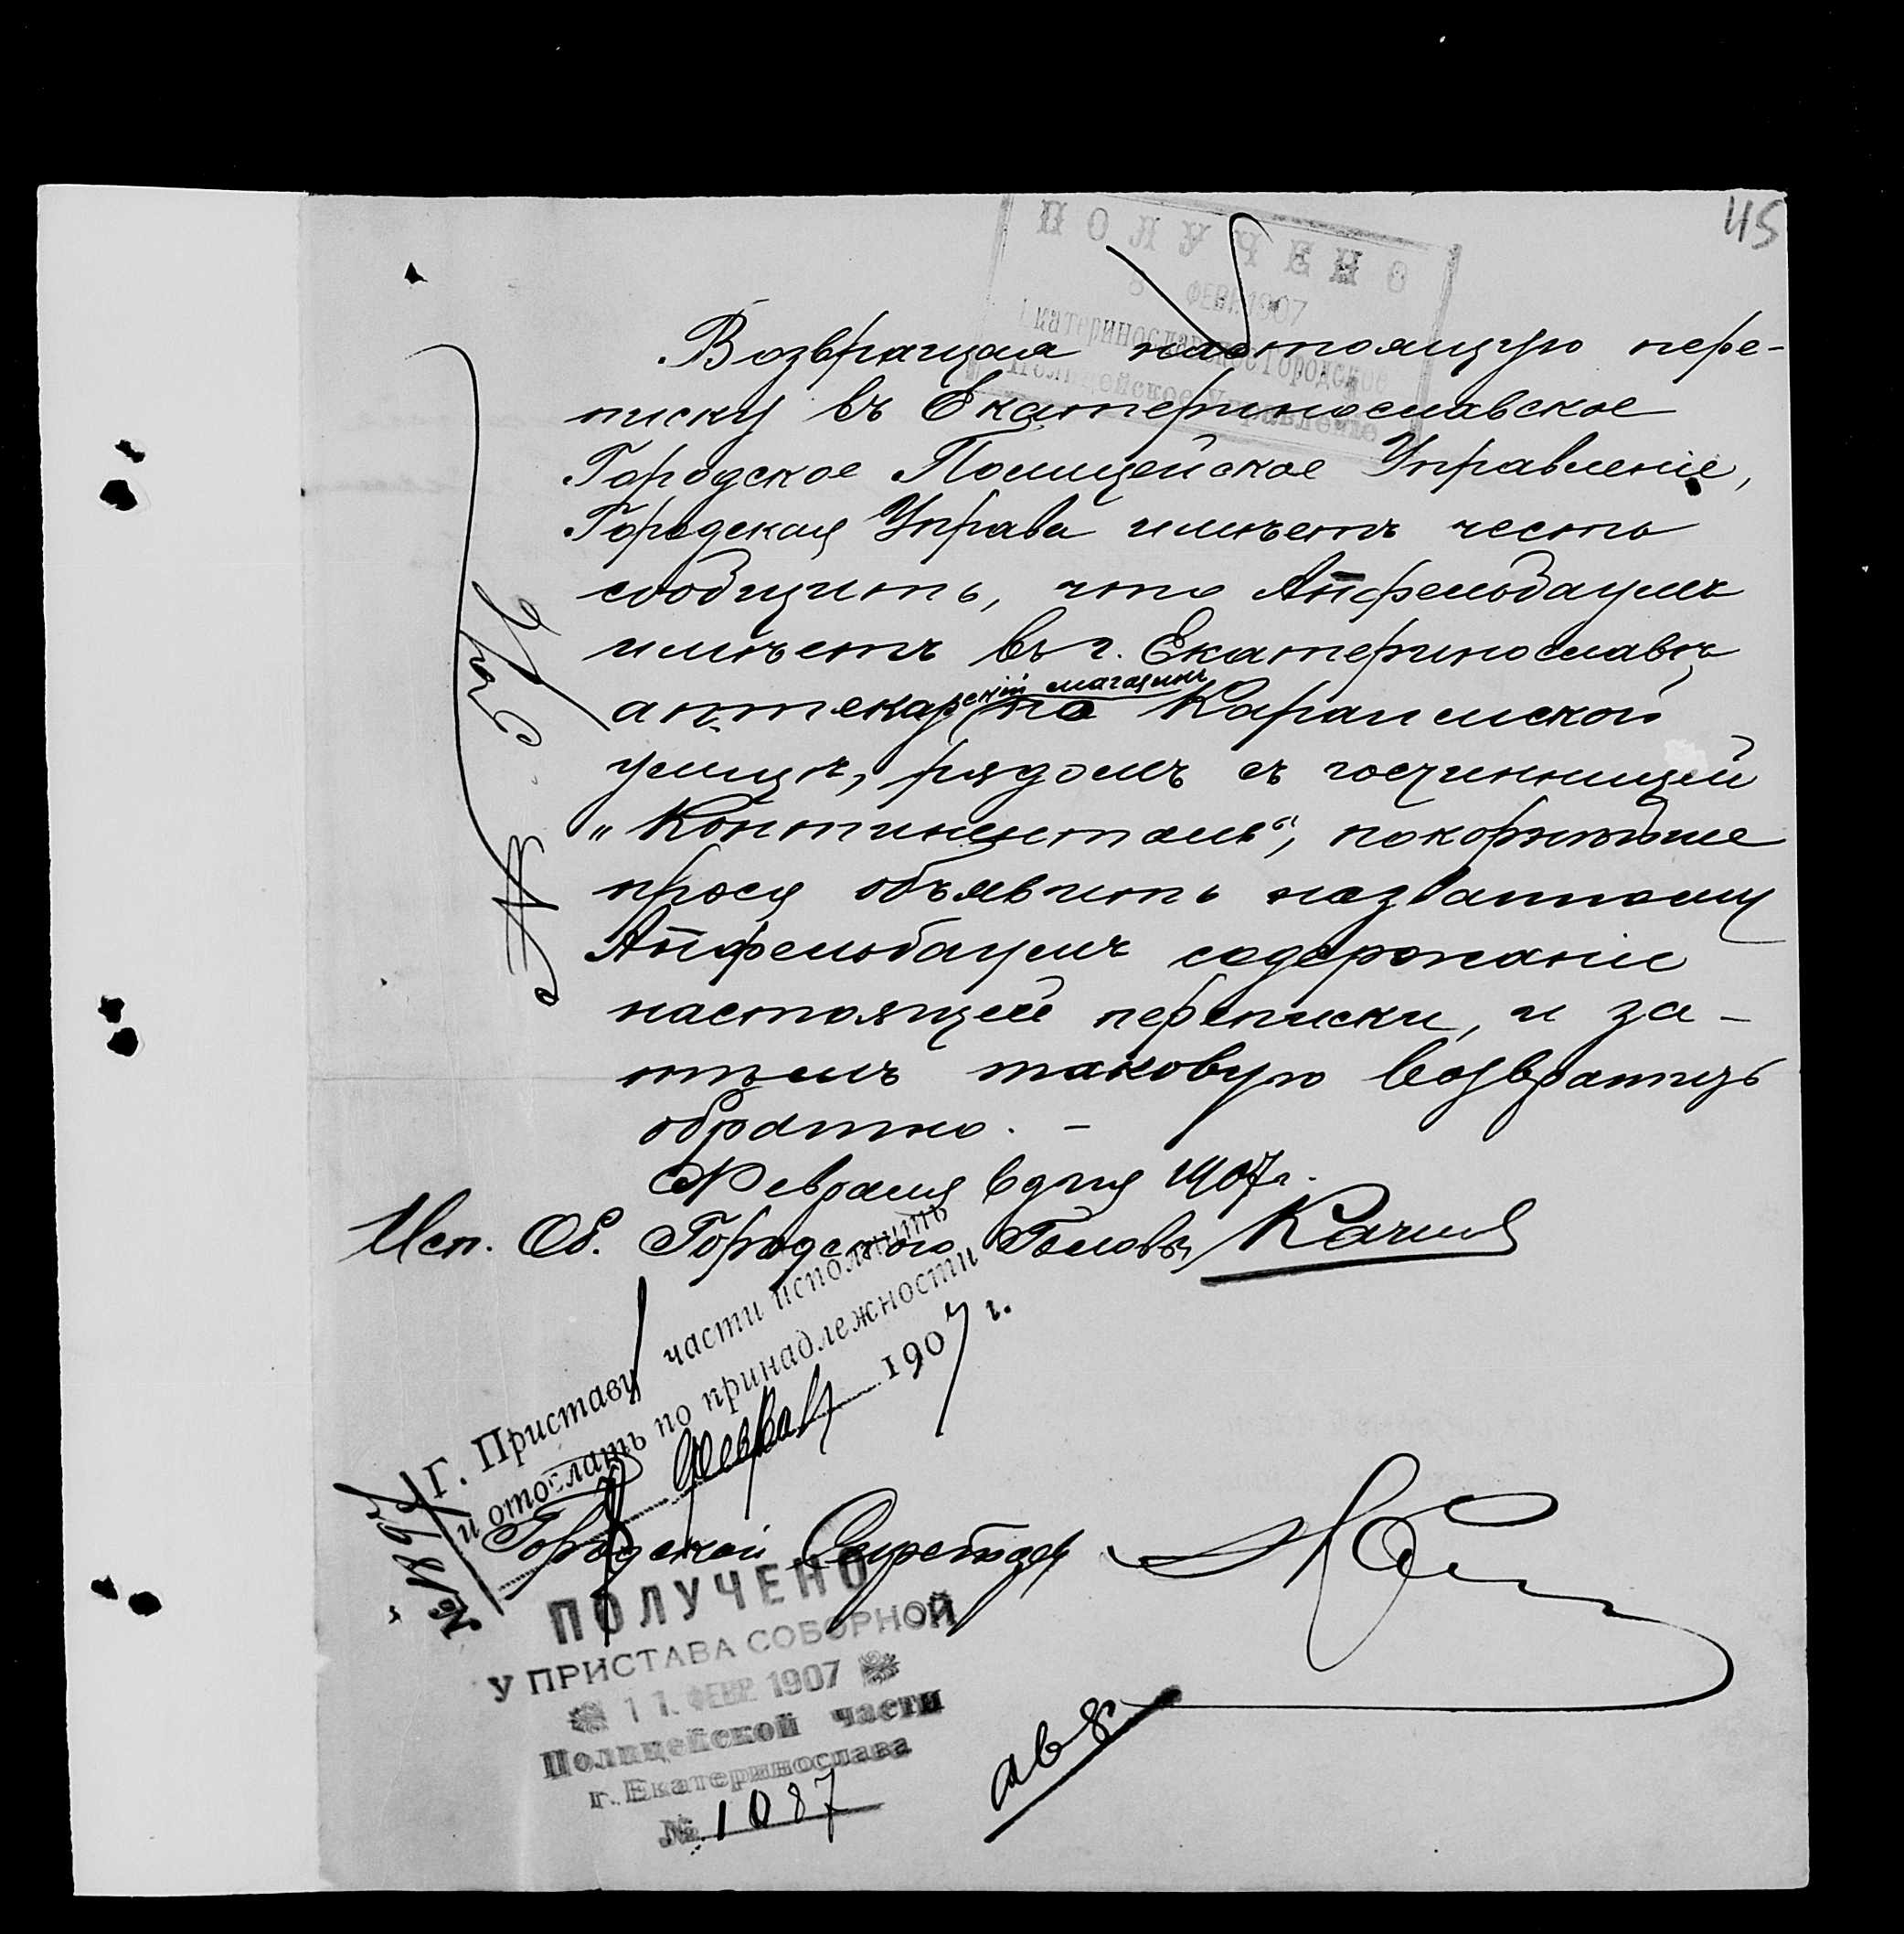 45
ПОЛУЧЕНО
8 ФЕВР. 1907
Екатеринославское Городское
Полицейское Управление
Возвращая настоящую пере-
писку въ Екатеринославское
Городское Полицейское Управленіе,
Городская Управа имѣетъ честь
сообщить, что Апфельбаумъ
имѣетъ въ г. Екатеринославѣ
аптекарскій магазинъ по Караимской
улицѣ, рядомъ съ гостинницей
„Континенталь“, покорнѣйше
прося объявить названному
Апфельбаумъ содержаніе
настоящей переписки, и за-
тѣмъ таковую возвратить
обратно. –
Февраля 6 дня 1907 г.
Исп. Об. Городского Головы
Г. Приставу части исполнить
и отослать по принадлежности
8 февраля 1907 г.
Городской Секретарь
ПОЛУЧЕНО
У ПРИСТАВА СОБОРНОЙ
11. ФЕВР. 1907
Полицейской части
г. Екатеринослава
№ 1087